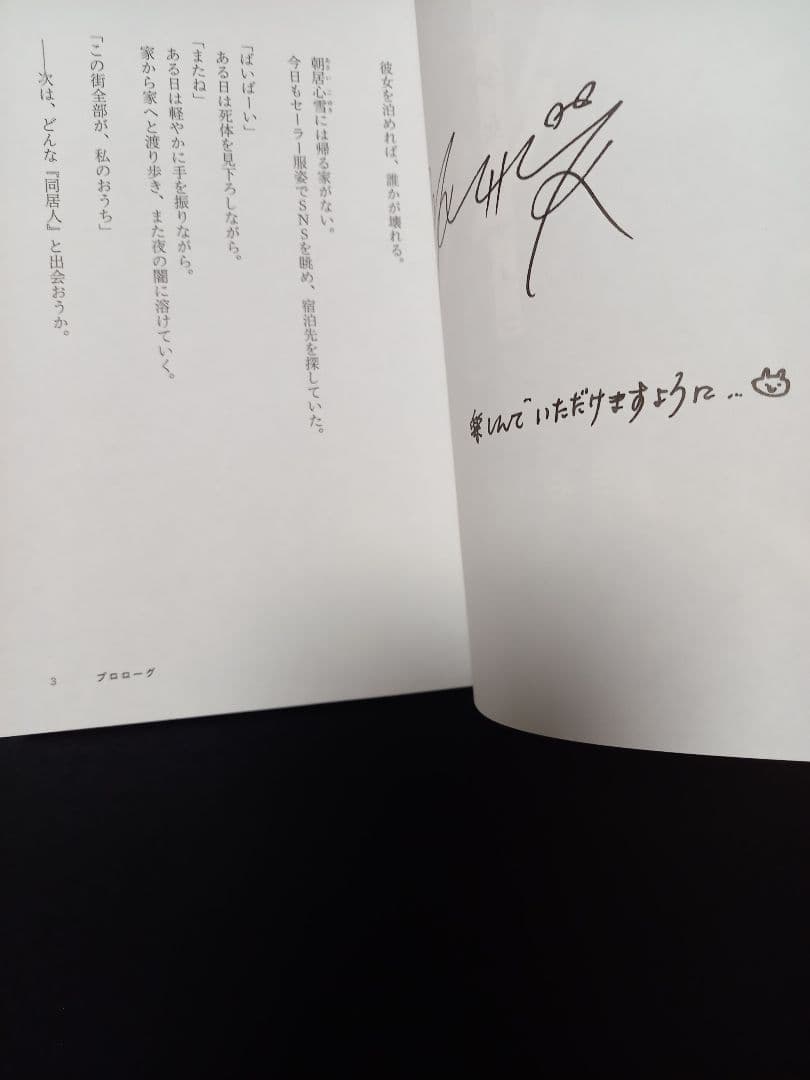 楽しんでいただけますように…
彼女を泊めれば、誰かが壊れる。
朝居心雪には帰る家がない。
今日もセーラー服姿でSNSを眺め、宿泊先を探していた。
「ばいばーい」
ある日は死体を見下ろしながら。
「またね」
ある日は軽やかに手を振りながら。
家から家へと渡り歩き、また夜の闇に溶けていく。
「この街全部が、私のおうち」
――次は、どんな『同居人』と出会おうか。
3 プロローグ